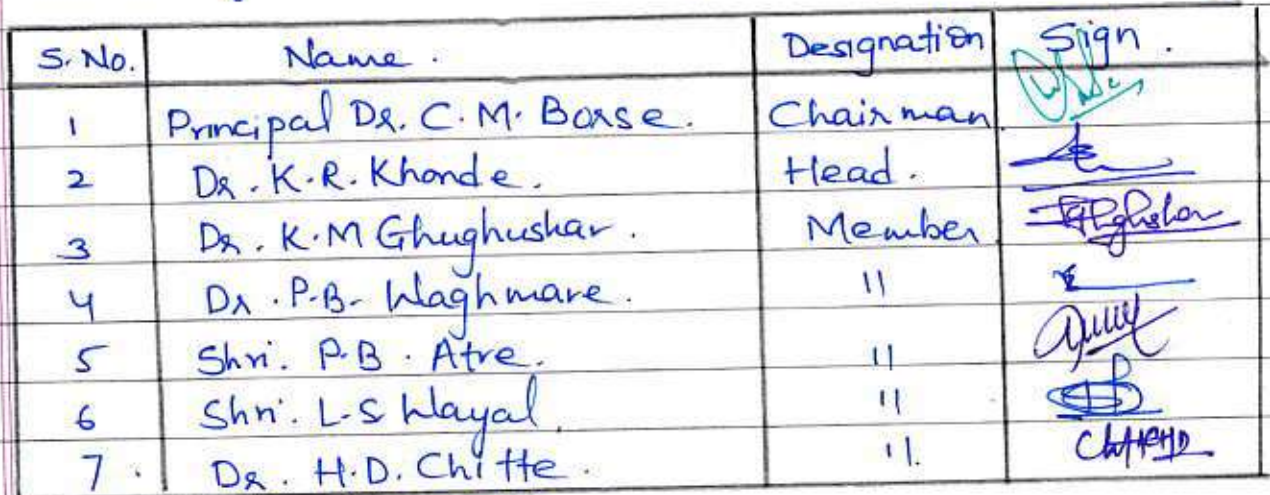 S. No. Name. Designation Sign.
1 Principal Dr. C. M. Borse. Chairman
2 Dr. K. R. Khonde. Head.
3 Dr. K. M Ghughuskar. Member
4 Dr. P. B. Waghmare. "
5 Shri. P. B. Atre. "
6 Shri. L. S Wayal. "
7. Dr. H. D. Chitte. "